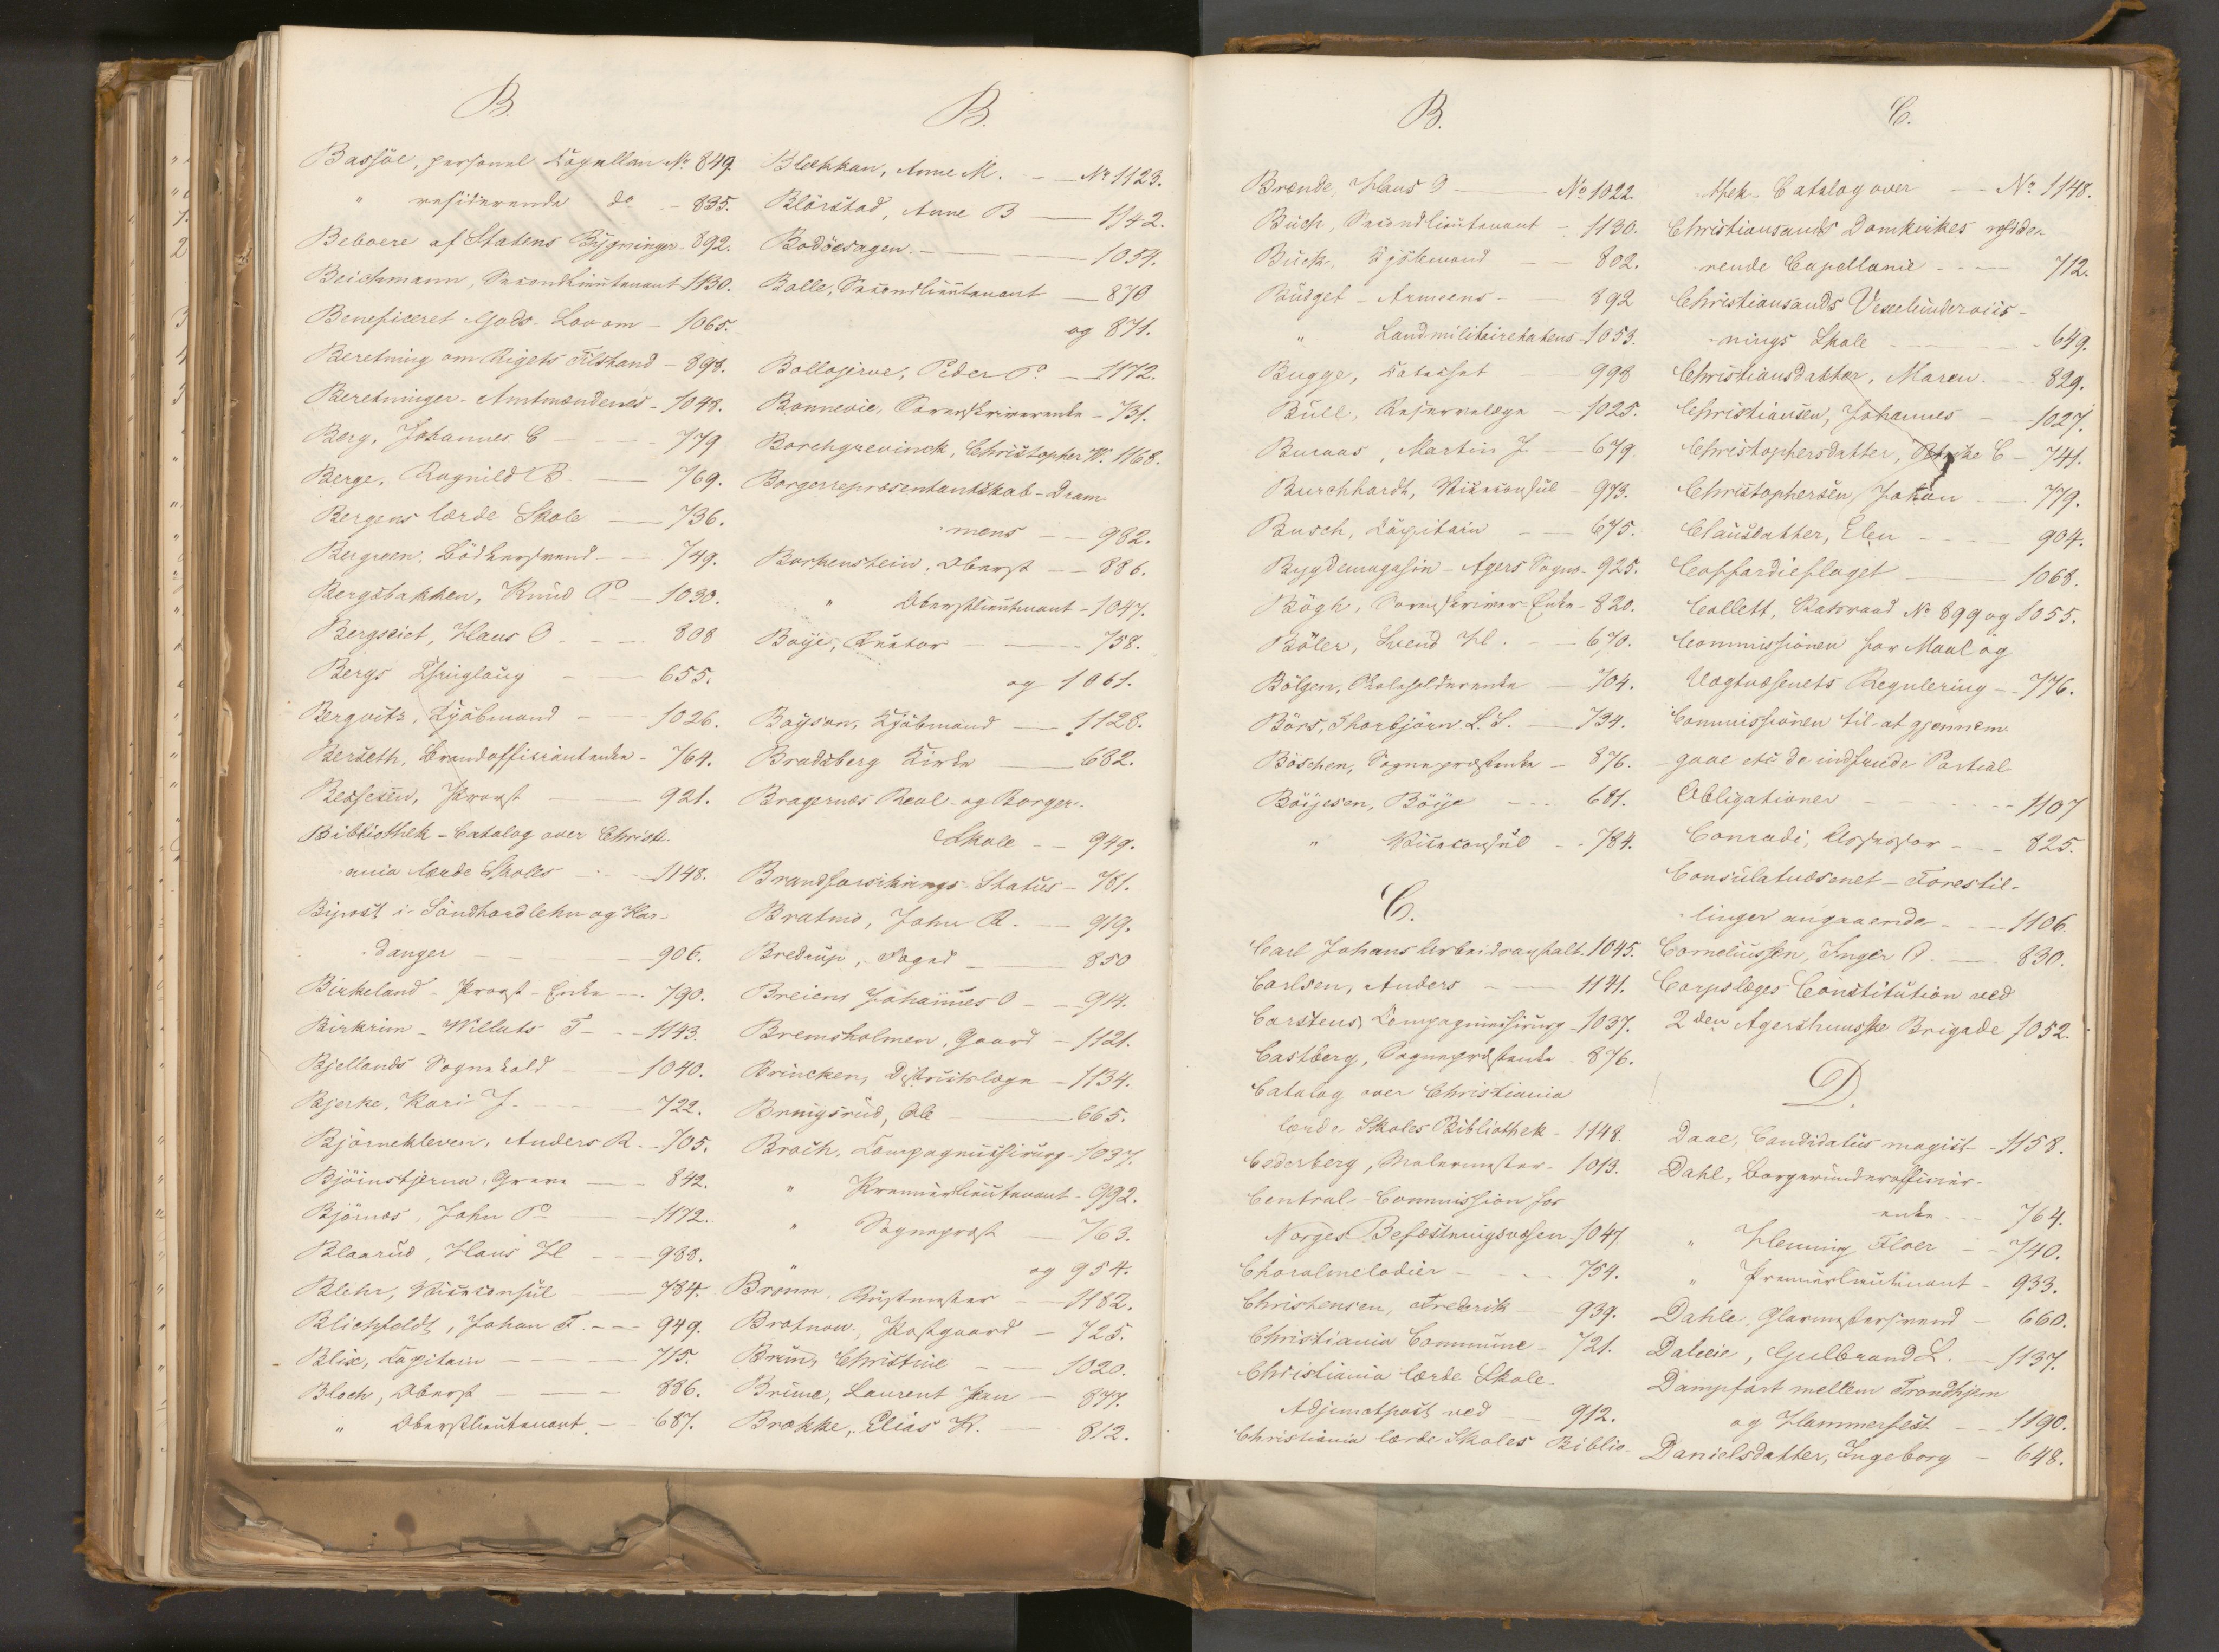 B.
Bassöe, personel Capellan No 849.
" residerende do - 835.
Beboere af Statens Bygninger - 892.
Beichmann, Secondlieutenant 1130.
Beneficeret Gods - Lov om - 1065.
Beretning om Rigets Tilstand - 898.
Beretninger - Amtmændenes - 1048.
Berg, Johannes C - 779
Berge, Ragnild B. - 769.
Bergens lærde Skole - 736.
Bergreen, Bödkersvend - 749.
Bergsbakken, Knud P - 1030.
Bergseiet, Hans O. - 808
Bergs Thinglaug - 655.
Bergvitz, Kjöbmand - 1026.
Berseth, Brandofficiantenke - 764.
Bessesen, Provst - 921.
Bibliothek - Catalog over Christi-
ania lærde Skoles - 1148.
Bipost i Söndhordlehn og Har-
danger - 906.
Birkeland - Provst - Enke - 790.
Birkrim - Willats T - 1143.
Bjellands Sognekald - 1040.
Bjerke, Kari J. - 722.
Björnekleven, Anders R. - 705.
Björnstjerna, Greve - 842.
Björnæs, John P - 1172.
Blaarud, Hans H - 938.
Blehr, Viceconsul - 784.
Blichfeldt, Johan F. - 949.
Blix, Capitain - 715.
Bloch, Oberst - 886.
" Oberstlieutenant - 687.
B.
Blekkan, Anne M. - No 1123.
Blörstad, Anne B - 1142.
Bodöesagen. - 1054.
Bolle, Secondlieutenant - 870
og 871.
Bollogjerve, Peder P. - 1172.
Bonnevie, Sorenskriverenke - 731.
Borchgrevinck, Christopher W. 1168.
Borgerrepræsentantskab - Dram-
mens - 982.
Borkenstein, Oberst - 886.
" Oberstlieutenant - 1047.
Boye, Rector - 758.
og 1061.
Boysen, Kjöbmand - 1128.
Bradsberg Kirke - 682.
Bragernæs Real- og Borger-
Skole - 949.
Brandforsikrings Status - 781.
Bratmo, John R. - 919.
Bredrup, Foged - 850
Breiens Johannes O - 914.
Bremsholmen, Gaard - 1121.
Brincken, Districtslæge - 1134.
Bringsrud, Ole - 665.
Broch, Compagnichirurg - 1037.
" Premierlieutenant - 992.
" Sognepræst - 763.
" og 954.
Bromm, Rustmester - 1182.
Brotnow, Postgaard - 725.
Brun, Christine - 1020.
Brune, Laurent Jean - 877.
Brække, Elias K. - 812.
B.
Brænde, Hans O - No 1022.
Buch, Secondlieutenant - 1130.
Buck, Kjöbmand - 802.
Budget - Armeens - 892
" Landmilitairetatens - 1053.
Bugge, Cataset 998
Bull, Reservelæge - 1025.
Buraas, Martin J. - 679
Burchhardt, Viceconsul - 973.
Busch, Capitain - 675.
Bygdemagasin - Agers Sogns - 925.
Bögh, Sorenskriver Enke - 820.
Böler, Svend H. - 670.
Bölgen, Skoleholderenke - 704.
Börs, Thorbjörn L. S. - 734.
Böschen, Sognepræstenke - 876.
Böiesen, Böije - 681.
" Viceconsul - 784.
C.
Carl Johans Arbeidsanstalt. 1045.
Carlsen, Anders - 1141.
Carstens, Compagnichirurg - 1037.
Castberg, Sognepræstenke - 876.
Catalog over Christiania
lærde Skoles Bibliothek - 1148.
Cederberg, Malermester - 1013.
Central - Commission for
Norges Befæstningsvæsen - 1047
Choralmelodier - 754.
Christensen, Frederik - 939.
Christiania Commune - 721.
Christiania lærde Skole -
Adjunctpost ved - 912.
Christiania lærde Skoles Biblio-
C.
thek - Catalog over - No 1148.
Christiansands Domkirkes reside-
rende Capellanie - 712.
Christiansands Vexelunderviis-
nings Skole - 649.
Christiansdatter, Maren. - 829.
Christiansen, Johannes - 1027.
Christophersdatter, C - 741.
Christophersen, Johan - 779.
Clausdatter, Elen - 904.
Coffardieflaget - 1068.
Collett, Statsraad No 899 og 1055.
Commissionen for Maal og
Vægtvæsenets Regulering - 776.
Commissionen til at gjennem-
gaae etc de indfriede Partial-
Obligationer - 1107
Conradi, Assessor - 825.
Consulatvæsenet - Forestil-
linger angaaende - 1106.
Corneliussen, Inger P. - 830.
Corpslæges Constitution ved
2den Agershuusske Brigade 1052.
D.
Daae, Candidatus magist - 1158.
Dahl, Borgerunderofficiers-
enke - 764.
" Henning Floer - 740.
" Premierlieutenant - 933.
Dahle, Glarmestersvend - 660.
Daleeie, Gulbrand L. - 1137.
Dampfart mellem Trondhjem
og Hammerfest - 1190.
Danielsdatter, Ingeborg - 648.